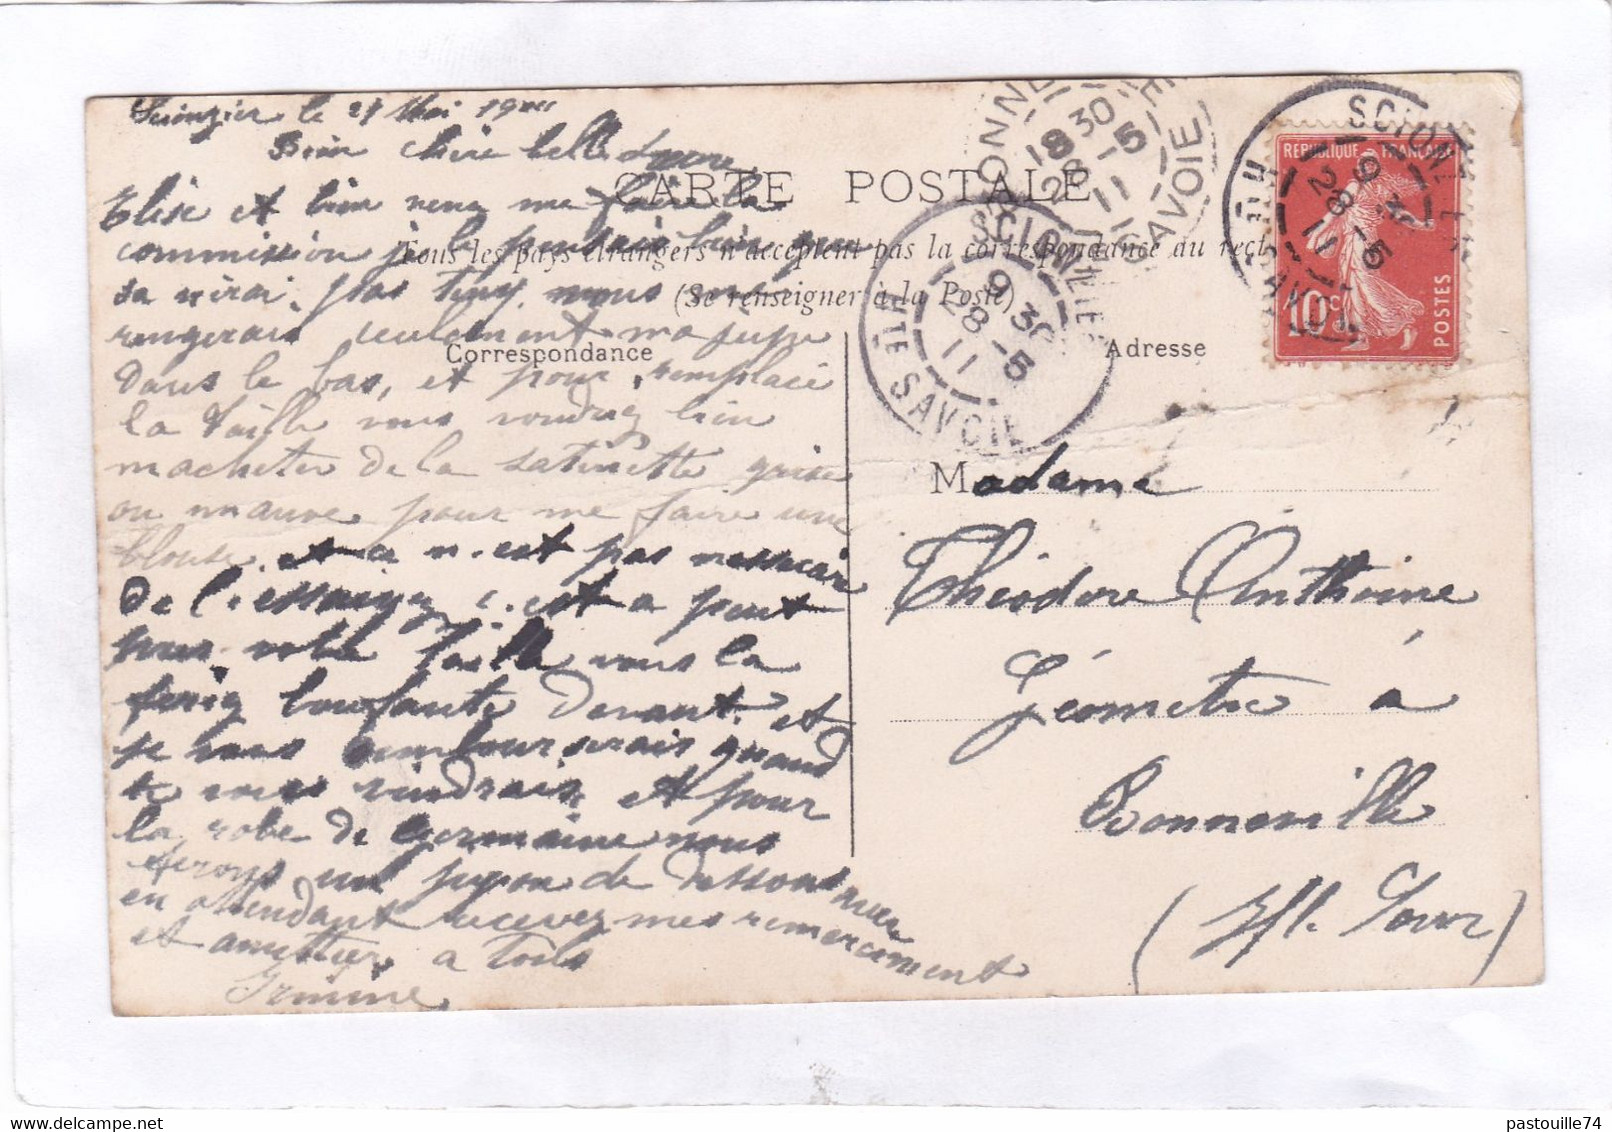 le 27 Mai 19
Bien chère belle
Elise et bien venu me faire la
commission je le pensais bien que
sa n'irai pas
rengerais seulement ma jupe
dans le bas, et pour remplacé
la taille vous voudrez bien
macheter de la satinette grise
ou mauve pour me faire une
blouse et ce n'est pas nessecair
de l'essaiyez c'est a peut
près votre taille vous la
ferez bouffante devant et
je vous rembourserais quand
je vous viendrais et pour
la robe de Germaine nous
ferons un jupon de dessous
en attendant recevez mes remerciement
et amitier a tous
CARTE POSTALE
Tous les pays étrangers n'acceptent pas la correspondance au recto
(Se renseigner à la Poste)
Correspondance
Adresse
SCIONZIER
9 30
28 - 5
11
HTE SAVOIE
BONNEVILLE
18 30
28 - 5
11
HTE SAVOIE
SCIONZIER
9 30
28 - 5
11
HTE SAVOIE
REPUBLIQUE FRANÇAISE
10c
POSTES
Madame
Théodore Anthoine
Géomètre à
Bonneville
(Hte Savoie)
pastouille74